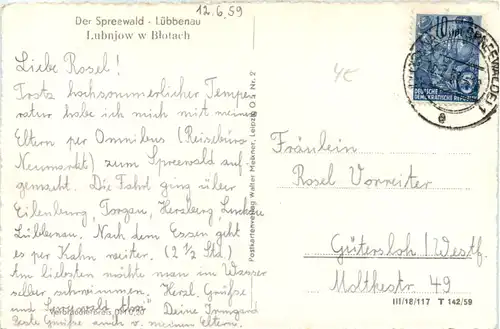 12.6.59
Der Spreewald - Lübbenau
Lubnjow w Błotach
Liebe Rosel!
Trotz hochsommerlicher Tempe-
ratur habe ich mich mit meinen
Eltern per Omnibus (Reisebüro
Neumarkt) zum Spreewald auf-
gemacht. Die Fahrt ging über
Eilenburg, Torgau, Herzberg, Luckau
Lübbenau. Nach dem Essen geht
es per Kahn weiter. (2 1/2 Std.)
Am liebsten möchte man im Wasser
selber schwimmen. Herzl. Grüße
und Spreewald
Deine Irmgard
Beste Grüße auch v. meinen Eltern.
Postkartenverlag Walter Meixner, Leipzig O 5 Nr. 2
4€
10
5
DEUTSCHE
DEMOKRATISCHE REPUBLIK
Fräulein
Rosel Vorreiter
Gütersloh/Westf.
Moltkestr. 49
III/18/117 T 142/59